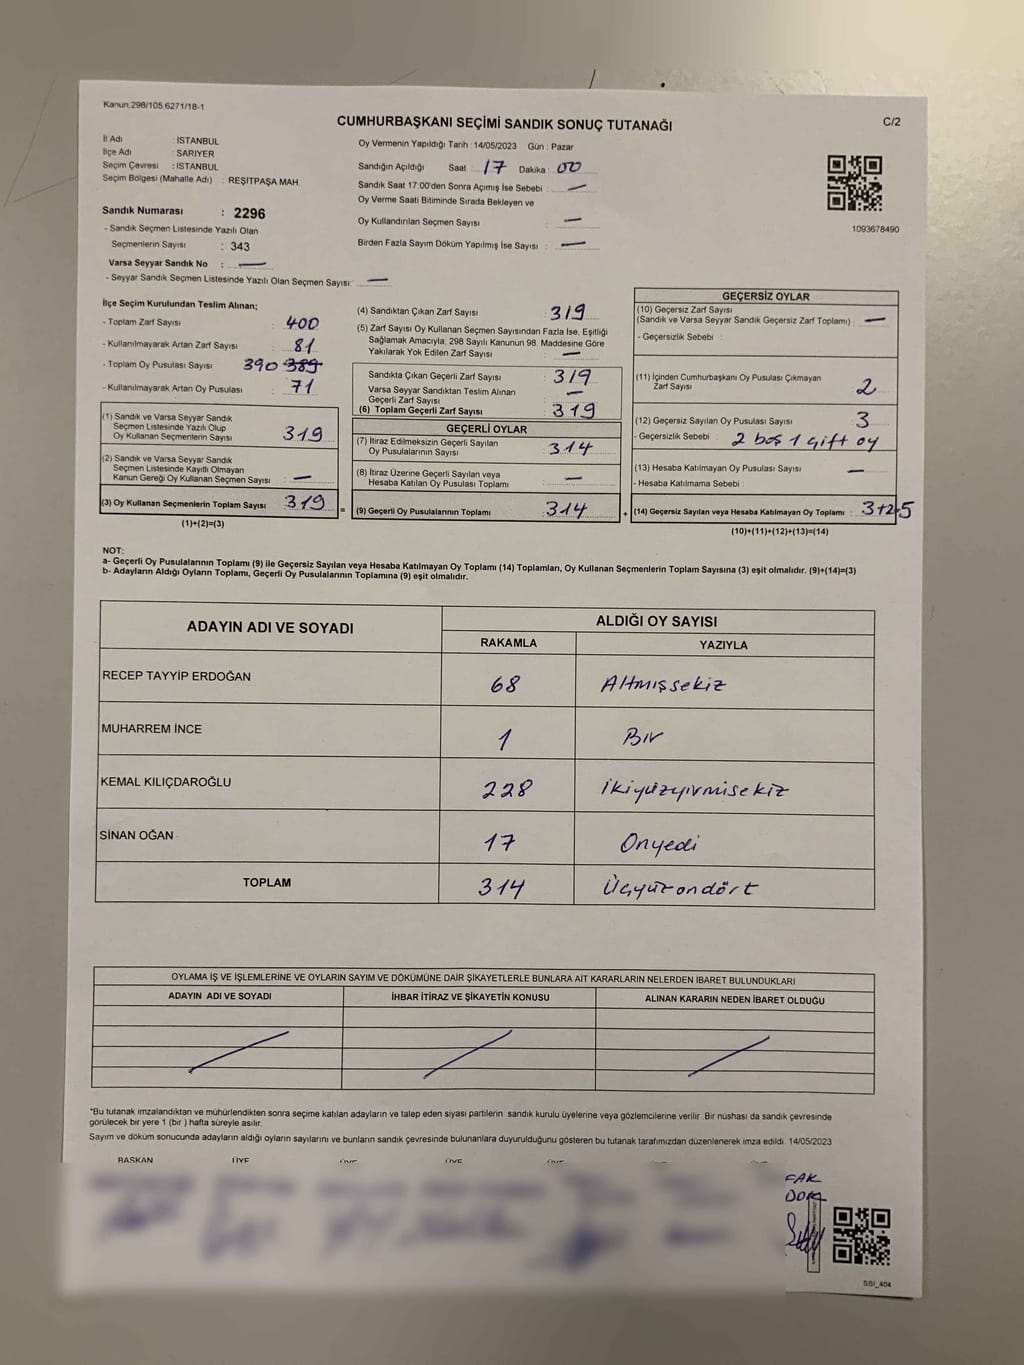 Kanun.298/105,6271/18-1
CUMHURBAŞKANI SEÇİMİ SANDIK SONUÇ TUTANAĞI
C/2
İl Adı : İSTANBUL
İlçe Adı : SARIYER
Seçim Çevresi : İSTANBUL
Seçim Bölgesi (Mahalle Adı) : REŞİTPAŞA MAH.
Sandık Numarası : 2296
- Sandık Seçmen Listesinde Yazılı Olan
Seçmenlerin Sayısı : 343
Varsa Seyyar Sandık No : —
- Seyyar Sandık Seçmen Listesinde Yazılı Olan Seçmen Sayısı: —
Oy Vermenin Yapıldığı Tarih : 14/05/2023 Gün : Pazar
Sandığın Açıldığı Saat : 17 Dakika : 00
Sandık Saat 17:00'den Sonra Açımış İse Sebebi : —
Oy Verme Saati Bitiminde Sırada Bekleyen ve
Oy Kullandırılan Seçmen Sayısı : —
Birden Fazla Sayım Döküm Yapılmış İse Sayısı : —
1093678490
İlçe Seçim Kurulundan Teslim Alınan;
- Toplam Zarf Sayısı : 400
- Kullanılmayarak Artan Zarf Sayısı : 81
- Toplam Oy Pusulası Sayısı 390 389
- Kullanılmayarak Artan Oy Pusulası : 71
(1) Sandık ve Varsa Seyyar Sandık
Seçmen Listesinde Yazılı Olup
Oy Kullanan Seçmenlerin Sayısı : 319
(2) Sandık ve Varsa Seyyar Sandık
Seçmen Listesinde Kayıtlı Olmayan
Kanun Gereği Oy Kullanan Seçmen Sayısı : —
(3) Oy Kullanan Seçmenlerin Toplam Sayısı : 319
(1)+(2)=(3)
(4) Sandıktan Çıkan Zarf Sayısı : 319
(5) Zarf Sayısı Oy Kullanan Seçmen Sayısından Fazla İse, Eşitliği
Sağlamak Amacıyla; 298 Sayılı Kanunun 98. Maddesine Göre
Yakılarak Yok Edilen Zarf Sayısı : —
Sandıkta Çıkan Geçerli Zarf Sayısı : 319
Varsa Seyyar Sandıktan Teslim Alınan
Geçerli Zarf Sayısı : —
(6) Toplam Geçerli Zarf Sayısı : 319
GEÇERLİ OYLAR
(7) İtiraz Edilmeksizin Geçerli Sayılan
Oy Pusulalarının Sayısı : 314
(8) İtiraz Üzerine Geçerli Sayılan veya
Hesaba Katılan Oy Pusulası Toplamı : —
=
(9) Geçerli Oy Pusulalarının Toplamı : 314
+
GEÇERSİZ OYLAR
(10) Geçersiz Zarf Sayısı
(Sandık ve Varsa Seyyar Sandık Geçersiz Zarf Toplamı) : —
- Geçersizlik Sebebi :
(11) İçinden Cumhurbaşkanı Oy Pusulası Çıkmayan
Zarf Sayısı : 2
(12) Geçersiz Sayılan Oy Pusulası Sayısı : 3
- Geçersizlik Sebebi : 2 boş 1 çift oy
(13) Hesaba Katılmayan Oy Pusulası Sayısı : —
- Hesaba Katılmama Sebebi :
(14) Geçersiz Sayılan veya Hesaba Katılmayan Oy Toplamı : 3+2=5
(10)+(11)+(12)+(13)=(14)
NOT:
a- Geçerli Oy Pusulalarının Toplamı (9) ile Geçersiz Sayılan veya Hesaba Katılmayan Oy Toplamı (14) Toplamları, Oy Kullanan Seçmenlerin Toplam Sayısına (3) eşit olmalıdır. (9)+(14)=(3)
b- Adayların Aldığı Oyların Toplamı, Geçerli Oy Pusulalarının Toplamına (9) eşit olmalıdır.
ADAYIN ADI VE SOYADI
ALDIĞI OY SAYISI
RAKAMLA YAZIYLA
RECEP TAYYİP ERDOĞAN 68 Altmışsekiz
MUHARREM İNCE 1 Bir
KEMAL KILIÇDAROĞLU 228 ikiyüzyirmisekiz
SİNAN OĞAN 17 Onyedi
TOPLAM 314 Üçyüzondört
OYLAMA İŞ VE İŞLEMLERİNE VE OYLARIN SAYIM VE DÖKÜMÜNE DAİR ŞİKAYETLERLE BUNLARA AİT KARARLARIN NELERDEN İBARET BULUNDUKLARI
ADAYIN ADI VE SOYADI İHBAR İTİRAZ VE ŞİKAYETİN KONUSU ALINAN KARARIN NEDEN İBARET OLDUĞU
"Bu tutanak imzalandıktan ve mühürlendikten sonra seçime katılan adayların ve talep eden siyasi partilerin sandık kurulu üyelerine veya gözlemcilerine verilir. Bir nüshası da sandık çevresinde
görülecek bir yere 1 (bir ) hafta süreyle asılır.
Sayım ve döküm sonucunda adayların aldığı oyların sayılarını ve bunların sandık çevresinde bulunanlara duyurulduğunu gösteren bu tutanak tarafımızdan düzenlenerek imza edildi. 14/05/2023
BAŞKAN ÜYE ÜYE ÜYE ÜYE
SSI_404